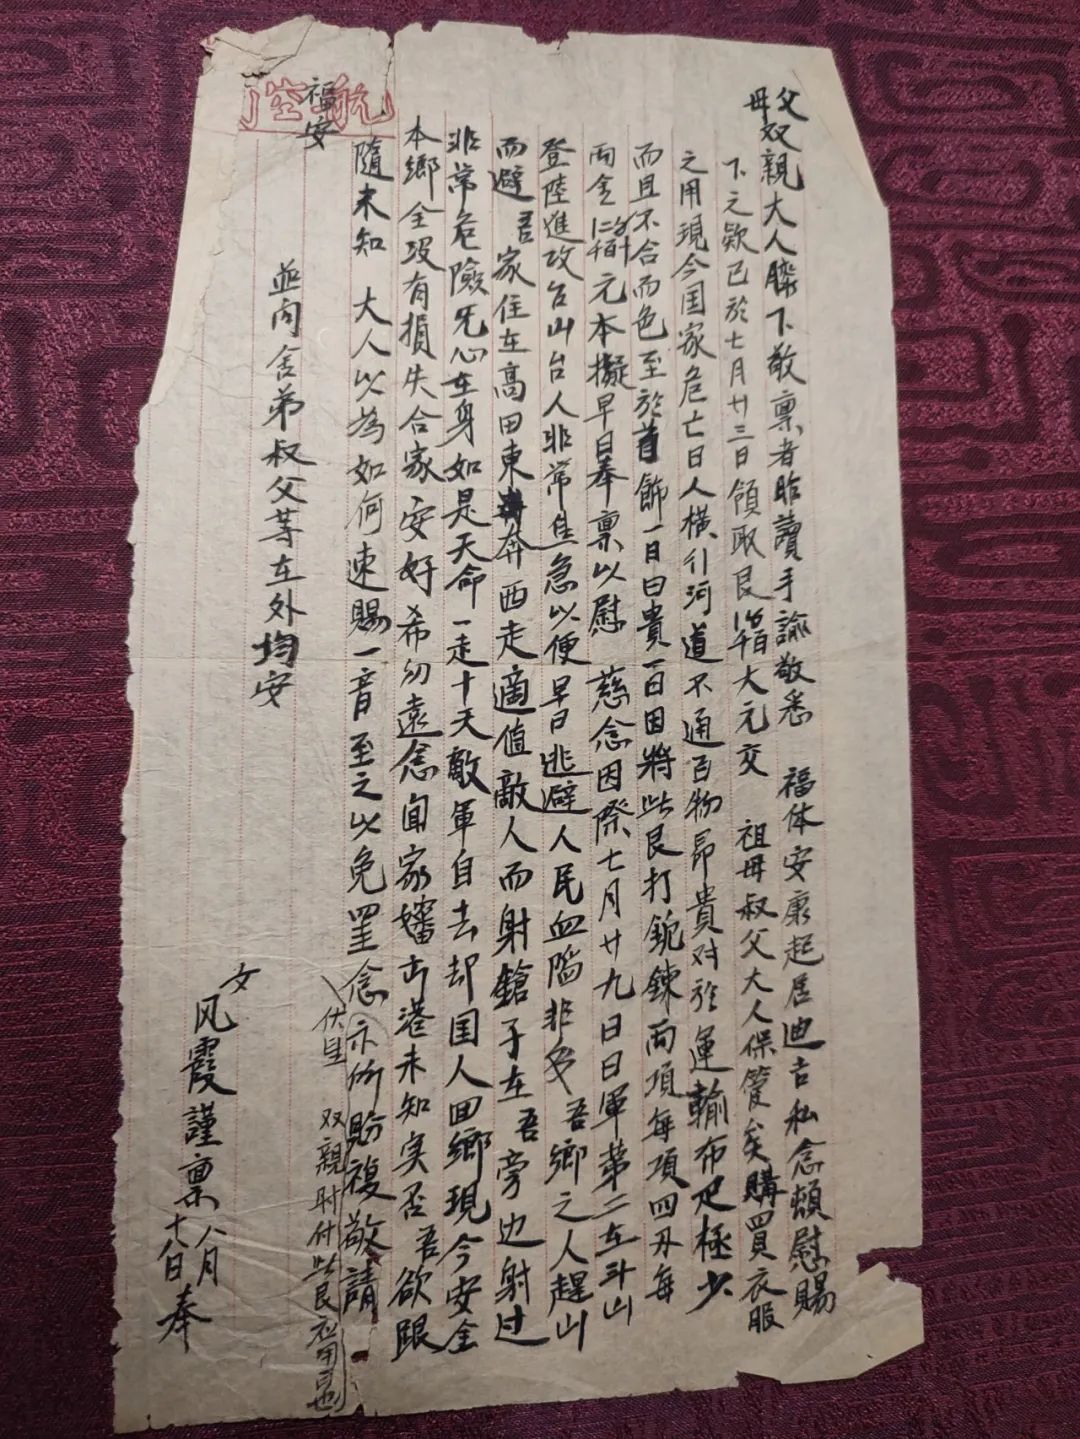 父母双親大人膝下敬禀者昨讀手諭敬悉 福体安康起居迪吉私念頓慰賜
下之欵已於七月廿三日領取艮 大元交 祖母叔父大人保管矣購買衣服
之用現今国家危亡日人橫行河道不通百物昂貴对於運輸布疋極少
而且不合而色至於首飾一日曰貴一日因將此艮打 鍊両項每項四 每
両金 元本擬早日奉禀以慰 慈念因際七月廿九日日軍第二在斗山
登陸進攻台山台人非常焦急以便早日逃避人民血陷非多 吾鄉之人趕山
而避 吾家住在高田東奔西走適值敵人而射鎗子在 吾旁边射过
非常危險死心在身如是天命一走十天敵軍自去却国人回鄉現今安全
本鄉全没有損失合家安好希勿遠念聞家嬸 港未知実否 吾欲跟
隨未知 大人以為如何速賜一音至之以免罣念亦所盼複敬請
伏望 双親附付此艮
福安
並问舍弟叔父等在外均安
女 风霞謹禀 八月 十八日 奉
航空